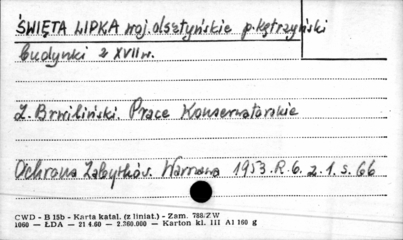 ŚWIĘTA LIPKA woj. olsztyńskie p. kętrzyński
budynki z XVII w.
Z. Brwiliński. Prace Konserwatorskie
Ochrona Zabytków. Warszawa 1953. R. 6. z. 1. s. 66
CWD - B 15b - Karta katal. (z liniat.) - Zam. 788/ZW
1060 — ŁDA — 21 4.60 — 2.360.000 — Karton kl. III A1 160 g